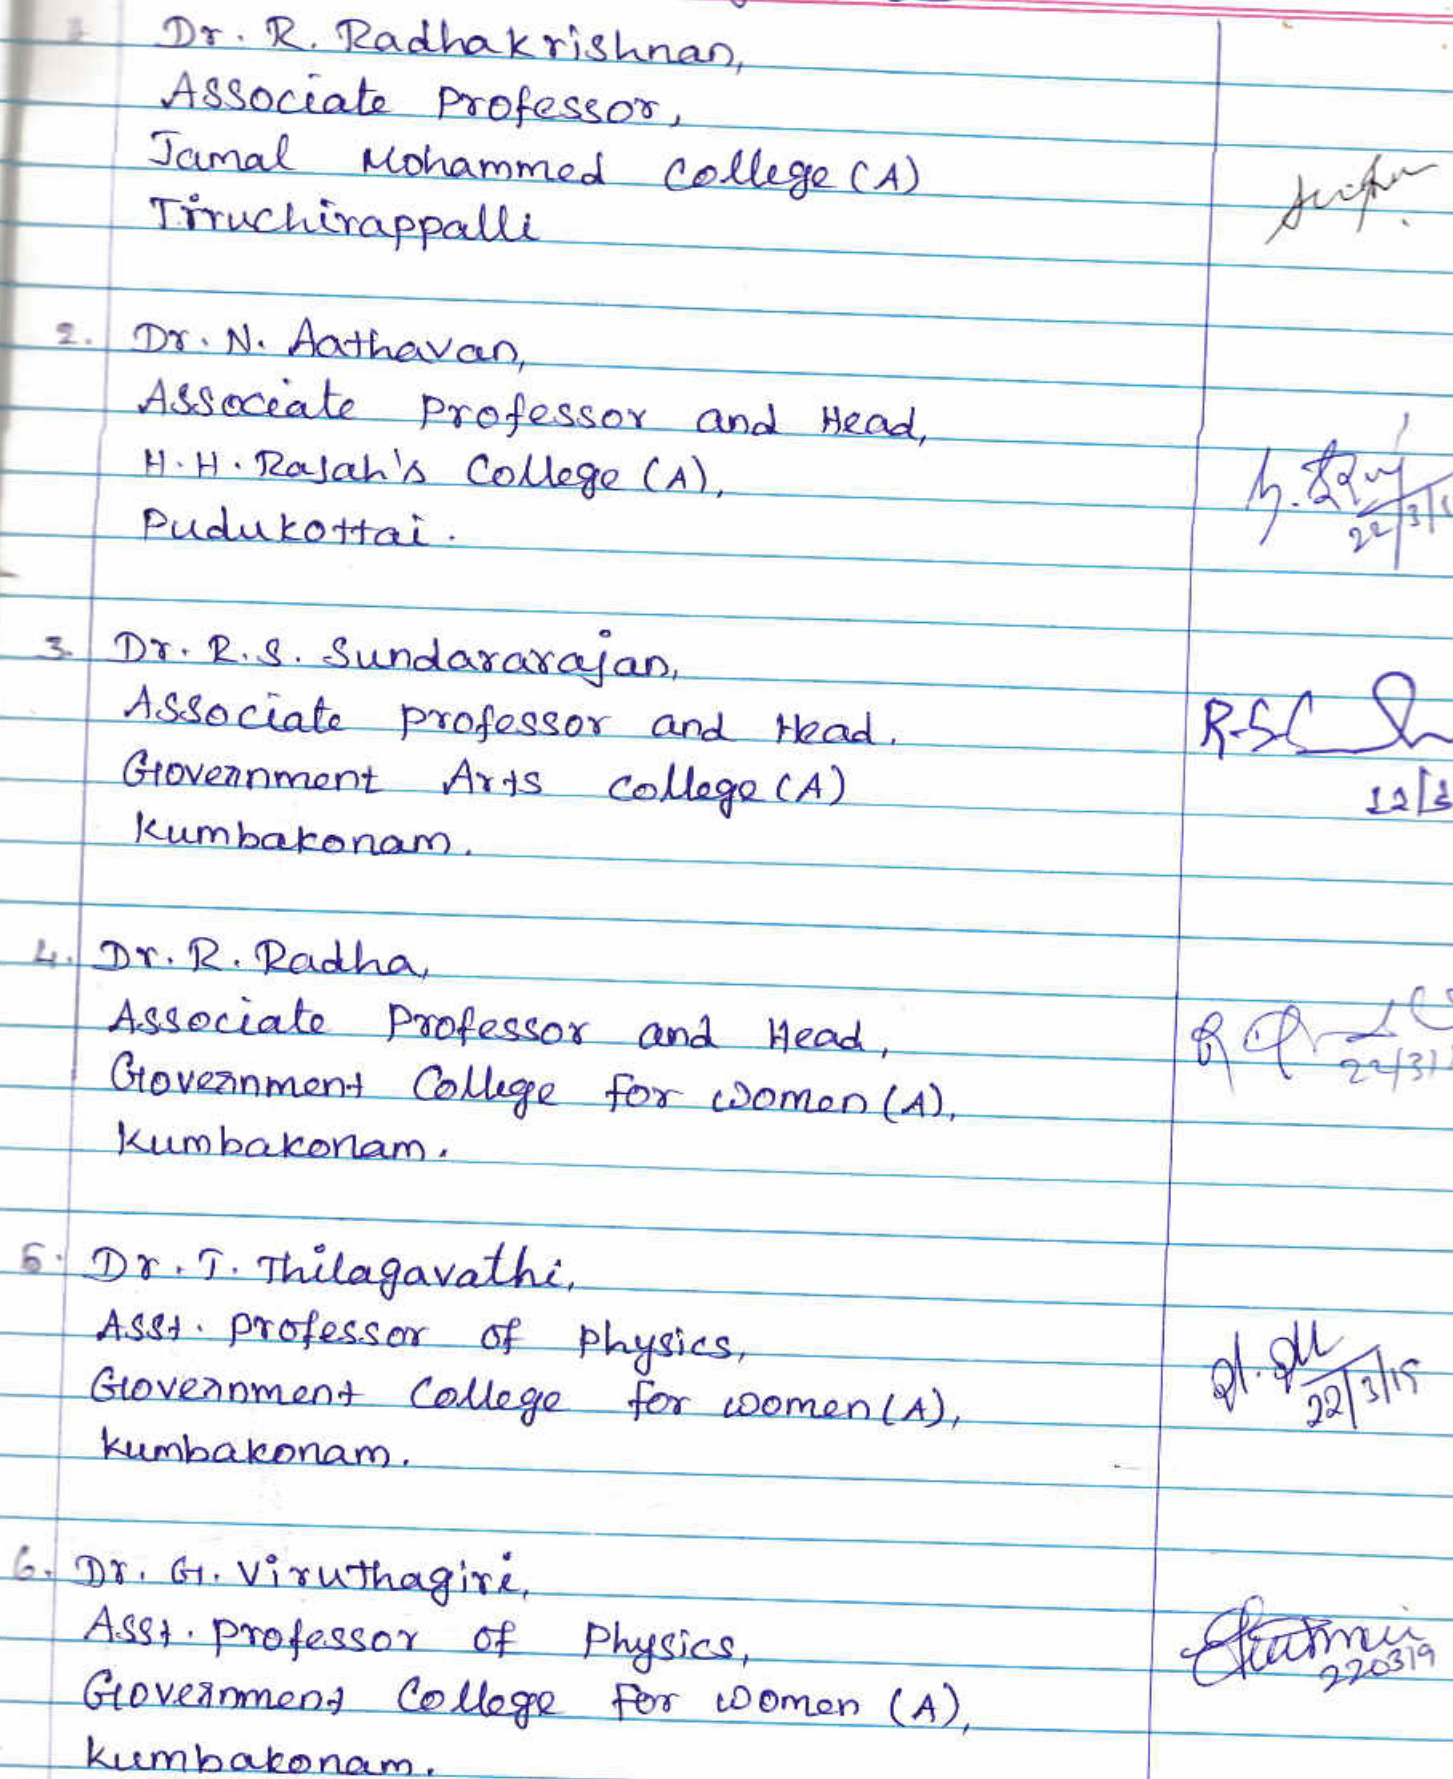 Dr. R. Radhakrishnan,
Associate Professor,
Jamal Mohammed College (A)
Tiruchirappalli
2. Dr. N. Aathavan,
Associate Professor and Head,
H.H. Rajah's College (A),
Pudukottai.
22/3/1
3. Dr. R.S. Sundararajan,
Associate Professor and Head.
Government Arts College (A)
Kumbakonam.
4. Dr. R. Radha,
Associate Professor and Head,
Government College for women (A),
Kumbakonam.
22/3/
5. Dr. T. Thilagavathi,
Asst. Professor of Physics,
Government College for women (A),
Kumbakonam.
22/3/19
6. Dr. G. Viruthagiri,
Asst. Professor of Physics,
Government College for women (A),
Kumbakonam.
220319